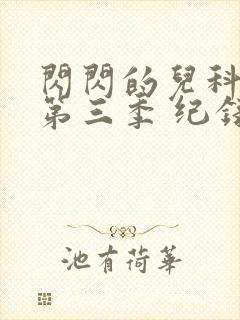 閃閃的兒科
第三季 纪
池有荷華